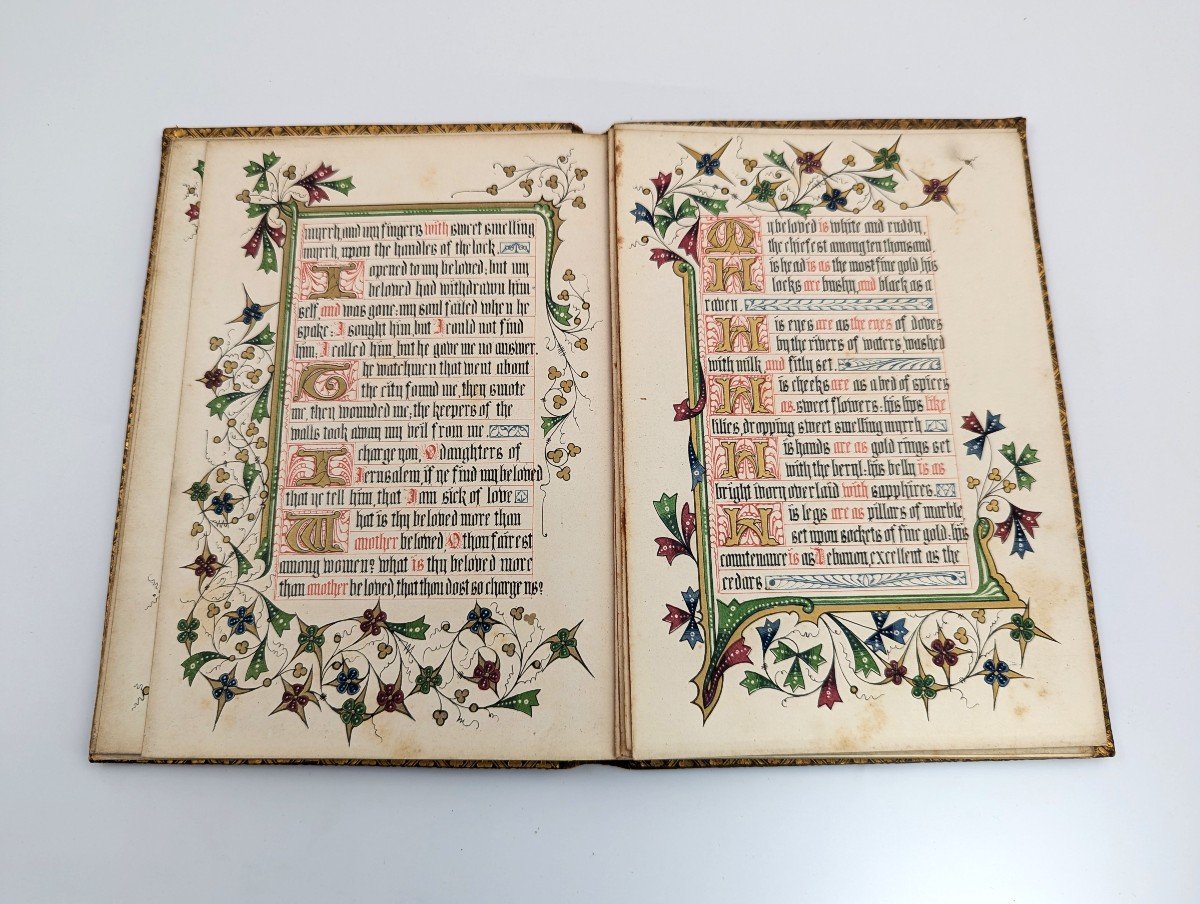 myrrh, and my fingers with sweet smelling
myrrh upon the handles of the lock
I opened to my beloved; but my
beloved had withdrawn him
self, and was gone: my soul failed when he
spoke: I sought him, but I could not find
him; I called him, but he gave me no answer.
The watchmen that went about
the city found me, they smote
me, they wounded me; the keepers of the
walls took away my veil from me
I charge you, O daughters of
Jerusalem, if ye find my beloved
that ye tell him, that I am sick of love
What is thy beloved more than
another beloved, O thou fairest
among women? what is thy beloved more
than another beloved, that thou dost so charge us?
My beloved is white and ruddy
the chiefest among ten thousand
His head is as the most fine gold, his
locks are bushy, and black as a
raven.
His eyes are as the eyes of doves
by the rivers of waters, washed
with milk, and fitly set.
His cheeks are as a bed of spices
as sweet flowers: his lips like
lilies, dropping sweet smelling myrrh
His hands are as gold rings set
with the beryl: his belly is as
bright ivory overlaid with sapphires.
His legs are as pillars of marble
set upon sockets of fine gold: his
countenance is as Lebanon, excellent as the
cedars